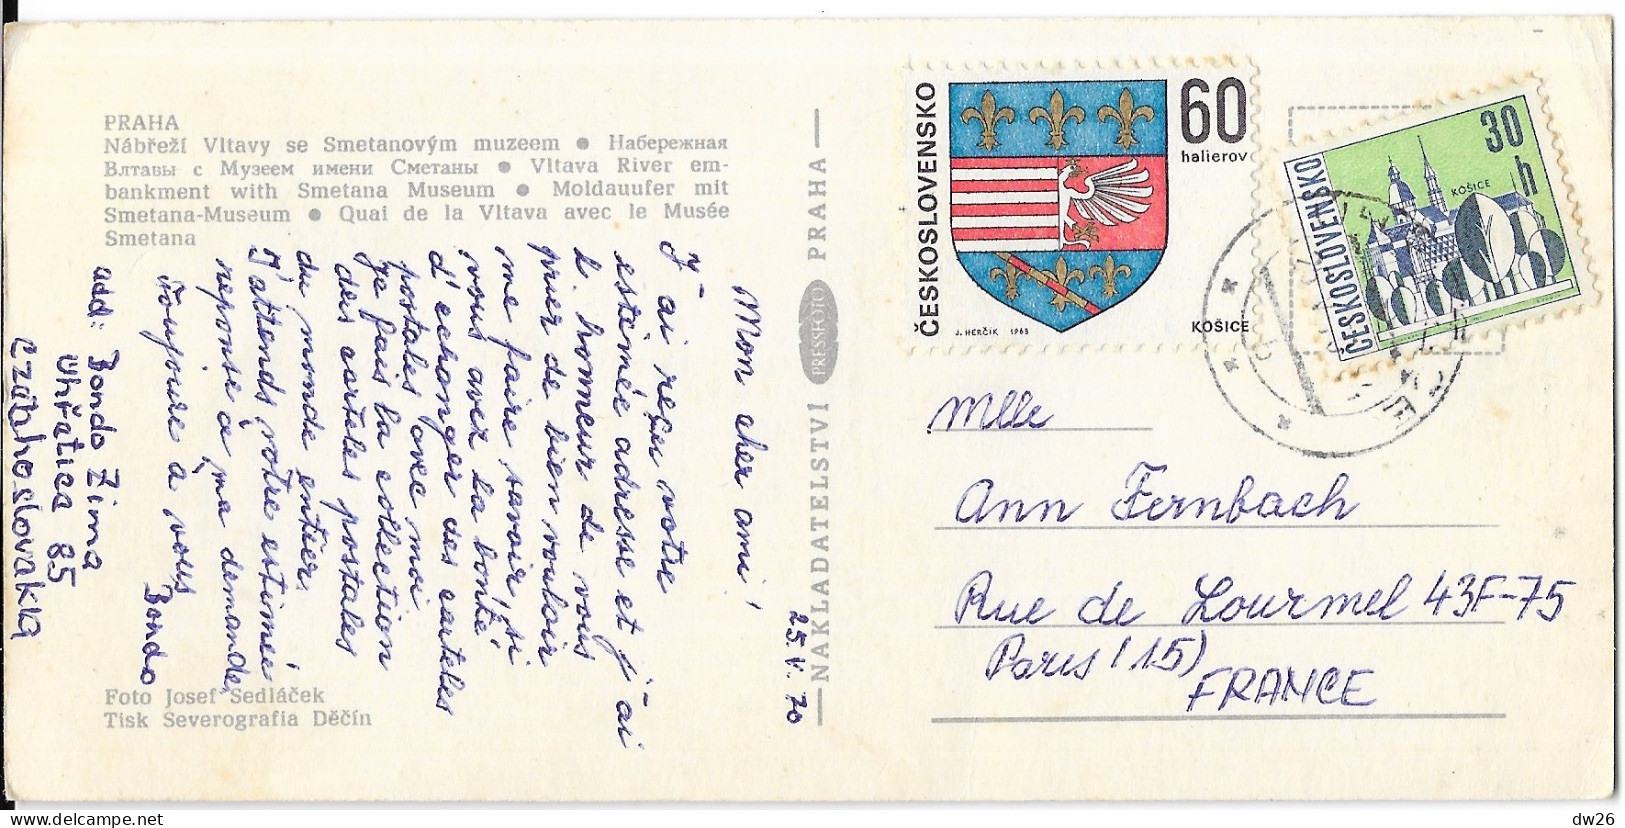 PRAHA
Nábřeží Vltavy se Smetanovým muzeem ● Набережная
Влтавы с Музеем имени Сметаны ● Vltava River em-
bankment with Smetana Museum ● Moldauufer mit
Smetana-Museum ● Quai de la Vltava avec le Musée
Smetana
25.V.70
Mon cher ami!
J'ai reçu votre
estimée adresse et j'ai
l. homeur de vous
prier de bien vouloir
me faire savoir, si
vous aver la bonté,
d'echonger des carteles
postales avec moi.
Je fais la collection
des carteles postales
du monde entier.
J'attends votre estimée
reponse à ma demande,
Toujoure a vous
Bondo
add: Bondo Zima
Uhřetice 85
Czechoslovakia
Foto Josef Sedláček
Tisk Severografia Děčín
NAKLADATELSTVÍ PRESSFOTO PRAHA
ČESKOSLOVENSKO
60
halierov
J. HERČÍK 1968
KOŠICE
ČESKOSLOVENSKO
30
h
KOŠICE
Mlle
Ann Fernbach
Rue de Lourmel 43F-75
Paris (15)
FRANCE
dw26